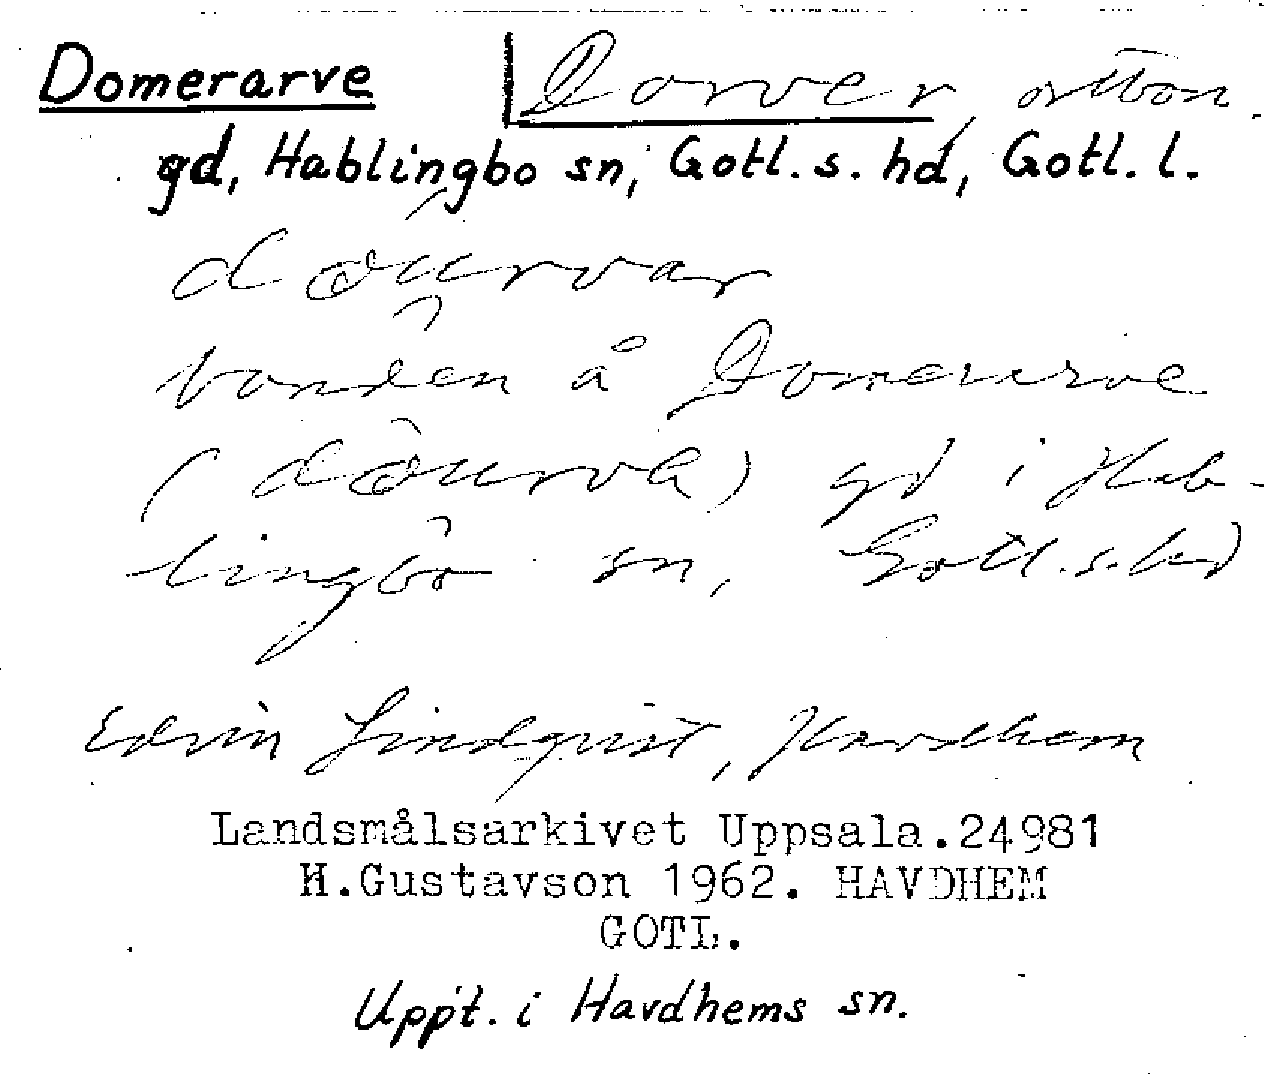 Domerarve Dorver, ortbon.
gd, Hablingbo sn, Gotl. s. hd, Gotl. l.
bonden å Domerarve
gd i Hab-
lingbo sn, Gotl. s. hd
Edvin Lindqvist, Havdhem
Landsmålsarkivet Uppsala.24981
H.Gustavson 1962. HAVDHEM
GOTL.
Uppt. i Havdhems sn.